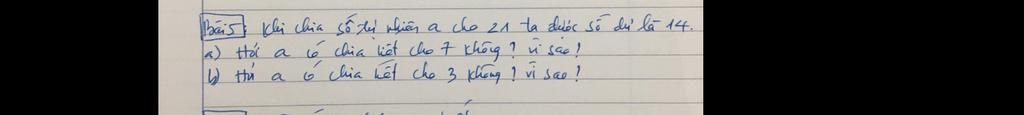 Bài 5: Khi chia số tự nhiên a cho 21 ta được số dư là 14.
a) Hỏi a có chia hết cho 7 không? Vì sao?
b) Hỏi a có chia hết cho 3 không? Vì sao?